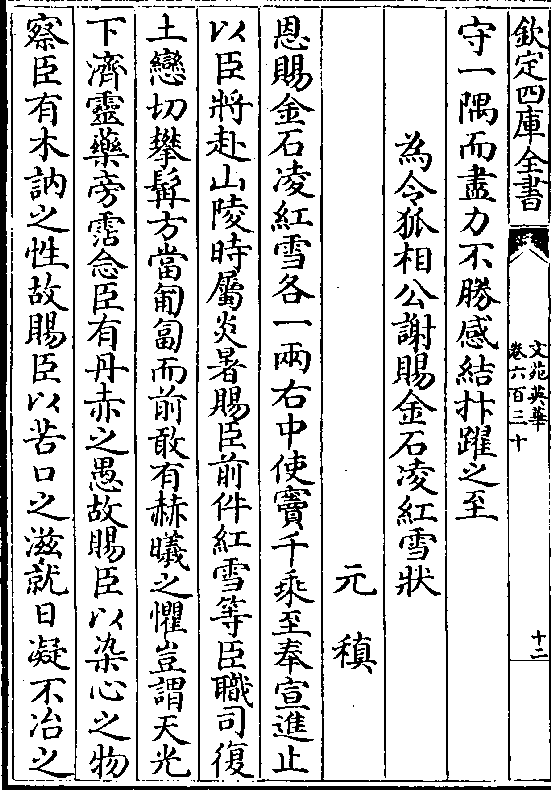 欽定四庫全書
文苑英華
卷六百三十
十二
守一隅而盡力不勝感結抃躍之至
為令狐相公謝賜金石凌紅雪狀
元稹
恩賜金石凌紅雪各一兩右中使竇千乘至奉宣進止
以臣將赴山陵時屬炎暑賜臣前件紅雪等臣職司復
土戀切攀髯方當匍匐而前敢有赫曦之懼豈謂天光
下濟靈藥旁霑念臣有丹赤之愚故賜臣以染心之物
察臣有木訥之性故賜臣以苦口之滋就日凝不冶之